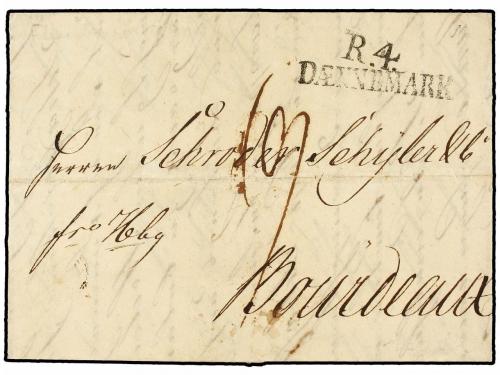 R.4.
DÆNNEMARK
Herren Schroder Schÿler & Co
fro Hbg
Bourdeaux